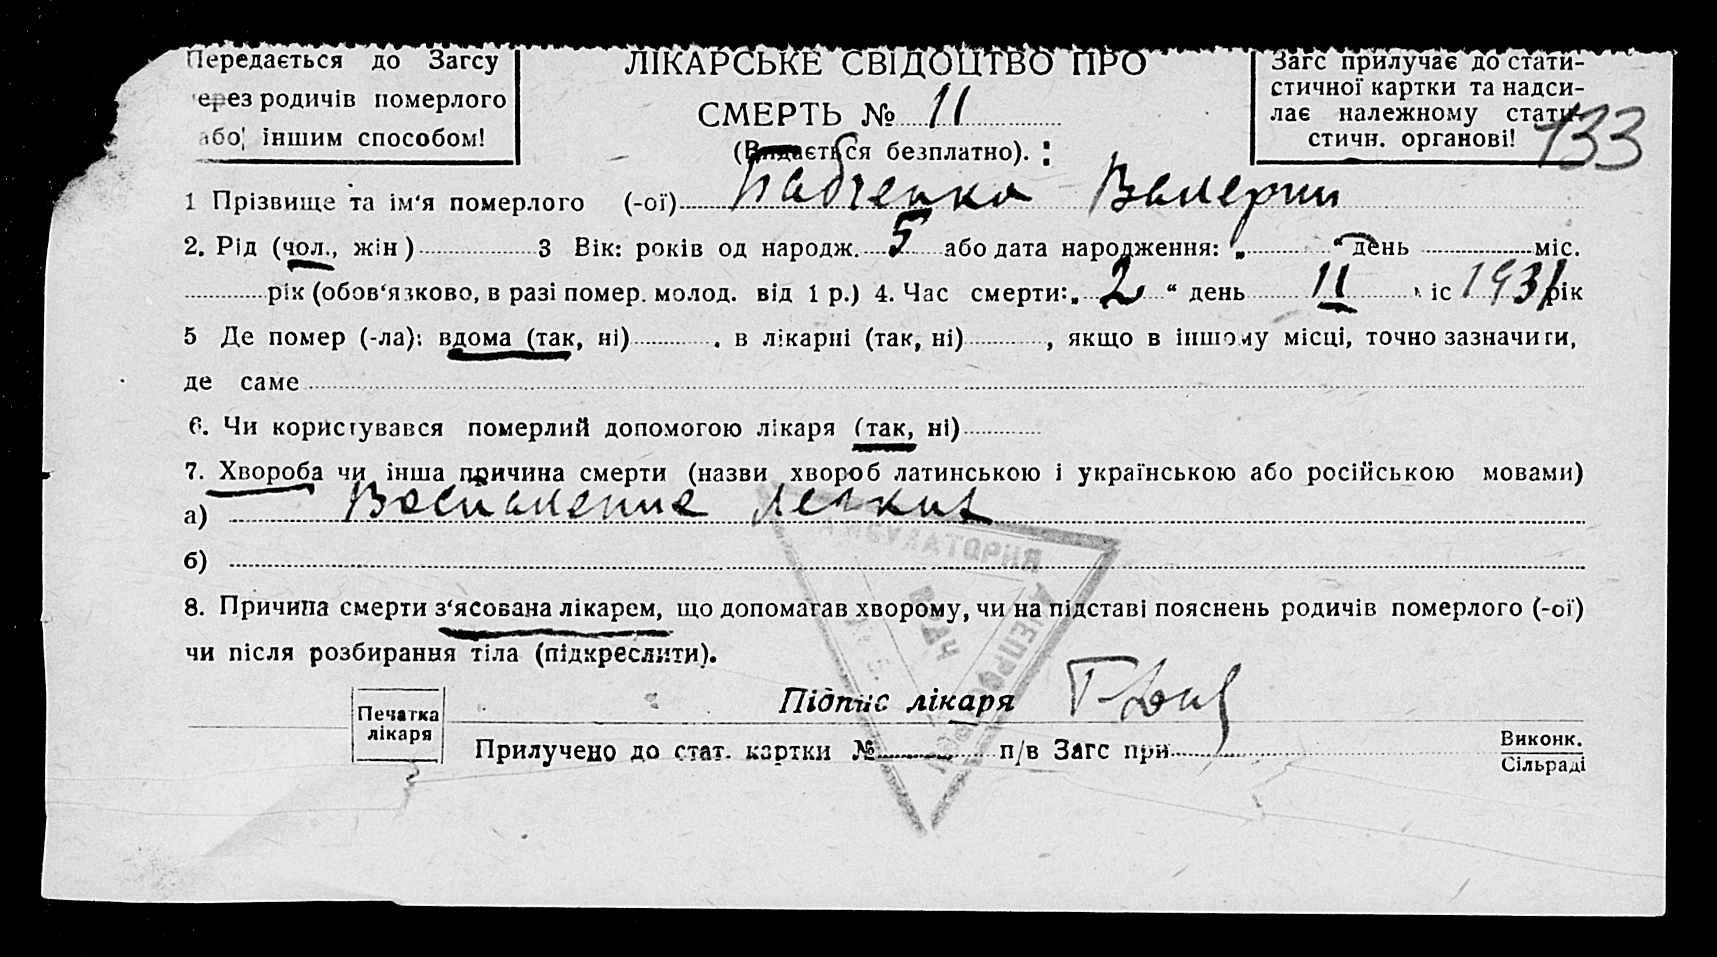 Передається до Загсу
через родичів померлого
або іншим способом!
ЛІКАРСЬКЕ СВІДОЦТВО ПРО
СМЕРТЬ № 11
(Видається безплатно).
Загс прилучає до стати-
стичної картки та надси-
лає належному стати-
стичн. органові!
133
1 Прізвище та ім'я померлого (-ої) Бабченко Валерий
2. Рід (чол., жін) 3 Вік: років од народж. 5 або дата народження: „ “ день міс.
рік (обов'язково, в разі помер. молод. від 1 р.) 4. Час смерти: „ 2 “ день 11 міс 1931 рік
5 Де помер (-ла): вдома (так, ні) , в лікарні (так, ні) , якщо в іншому місці, точно зазначити,
де саме
6. Чи користувався померлий допомогою лікаря (так, ні)
7. Хвороба чи інша причина смерти (назви хвороб латинською і українською або російською мовами)
а) Воспаление легких
б)
8. Причина смерти з'ясована лікарем, що допомагав хворому, чи на підставі пояснень родичів померлого (-ої)
чи після розбирання тіла (підкреслити).
АМБУЛАТОРИЯ
Підпис лікаря
Печатка
лікаря
Прилучено до стат. картки № п/в Загс при
Виконк.
Сільраді